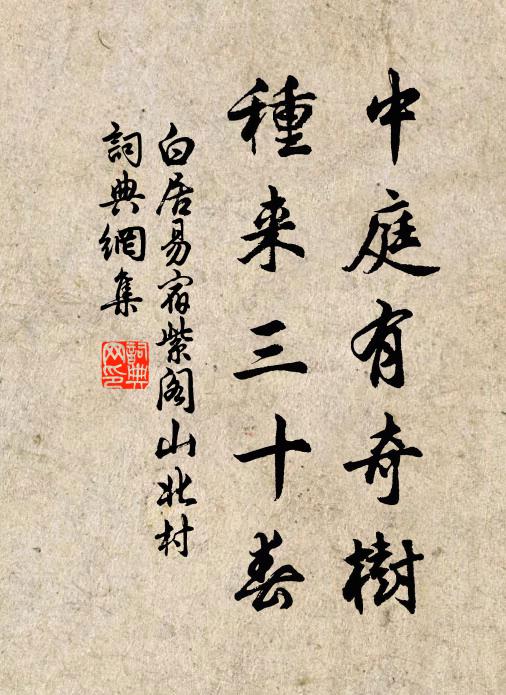 中庭有奇樹
種来三十春
白居易宿紫阁山北村
詞典網集
詞典网印